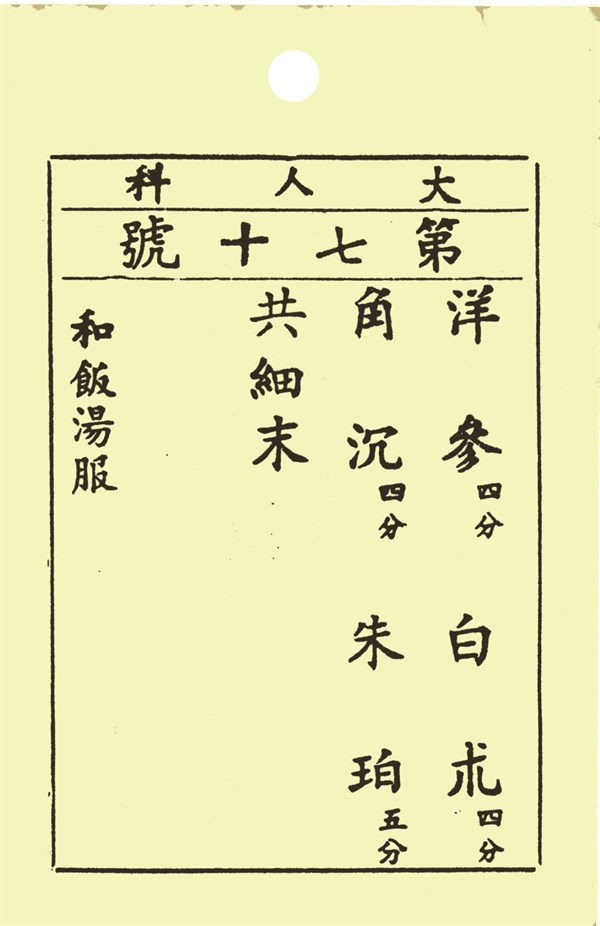 大人科
第七十號
洋參四分 白朮四分
角沉四分 朱珀五分
共細末
和飯湯服